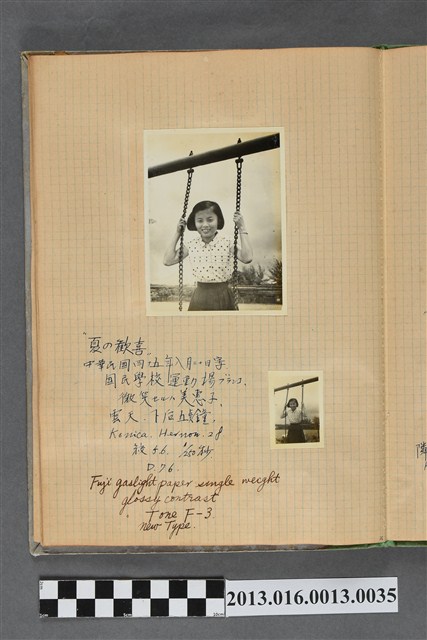 "夏の歓喜"
中華民國四十五年八月
國民學校運動場ブランコ
微笑せる美惠子
雲天、下后五點鐘、
Konica. Hexnon. 2.8
絞 5.6. 1/50秒
D.76.
Fuji gaslight paper single weight
glossy contrast
Tone F-3.
new Type.
2013.016.0013.0035